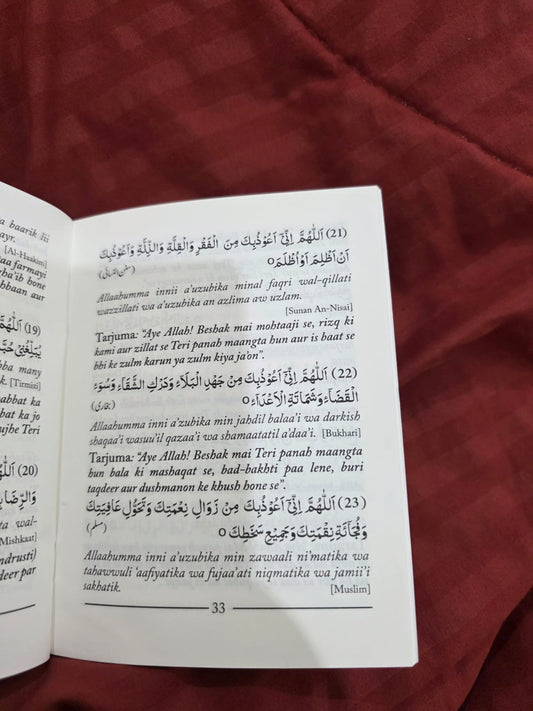 a baarik lii
ayr.
[Al-Haakim]
aa farmayi
ha'ib hone
hbaan aur
(19) اَللّٰهُمَّ
يُبَلِّغُنِيْ حُبَّ
bba many
k. [Tirmizi]
habbat ka
at ka jo
ujhe Teri
(20) اَللّٰ
وَالرِّضَا بِ
ta wal-
Mishkaat]
ndrusti)
deer par
(21) اَللّٰهُمَّ اِنِّيْٓ اَعُوْذُبِكَ مِنَ الْفَقْرِ وَالْقِلَّةِ وَالذِّلَّةِ وَاَعُوْذُبِكَ
اَنْ اَظْلِمَ اَوْ اُظْلَمَ ○ (سنن النسائی)
Allaahumma innii a'uzubika minal faqri wal-qillati
wazzillati wa a'uzubika an azlima aw uzlam.
[Sunan An-Nisai]
Tarjuma: "Aye Allah! Beshak mai mohtaaji se, rizq ki
kami aur zillat se Teri panah maangta hun aur is baat se
bhi ke zulm karun ya zulm kiya ja'on".
(22) اَللّٰهُمَّ اِنِّيْٓ اَعُوْذُبِكَ مِنْ جَهْدِ الْبَلَآءِ وَدَرْكِ الشَّقَآءِ وَسُوْٓءِ
الْقَضَآءِ وَشَمَاتَةِ الْاَعْدَآءِ ○ (بخاری)
Allaahumma inni a'uzubika min jahdil balaa'i wa darkish
shaqaa'i wasuu'il qazaa'i wa shamaatatil a'daa'i. [Bukhari]
Tarjuma: "Aye Allah! Beshak mai Teri panah maangta
hun bala ki mashaqat se, bad-bakhti paa lene, buri
taqdeer aur dushmanon ke khush hone se".
(23) اَللّٰهُمَّ اِنِّيْٓ اَعُوْذُبِكَ مِنْ زَوَالِ نِعْمَتِكَ وَتَحَوُّلِ عَافِيَتِكَ
وَفُجَآئَةِ نِقْمَتِكَ وَجَمِيْعِ سَخَطِكَ ○ (مسلم)
Allaahumma inni a'uzubika min zawaali ni'matika wa
tahawwuli 'aafiyatika wa fujaa'ati niqmatika wa jamii'i
sakhatik. [Muslim]
33